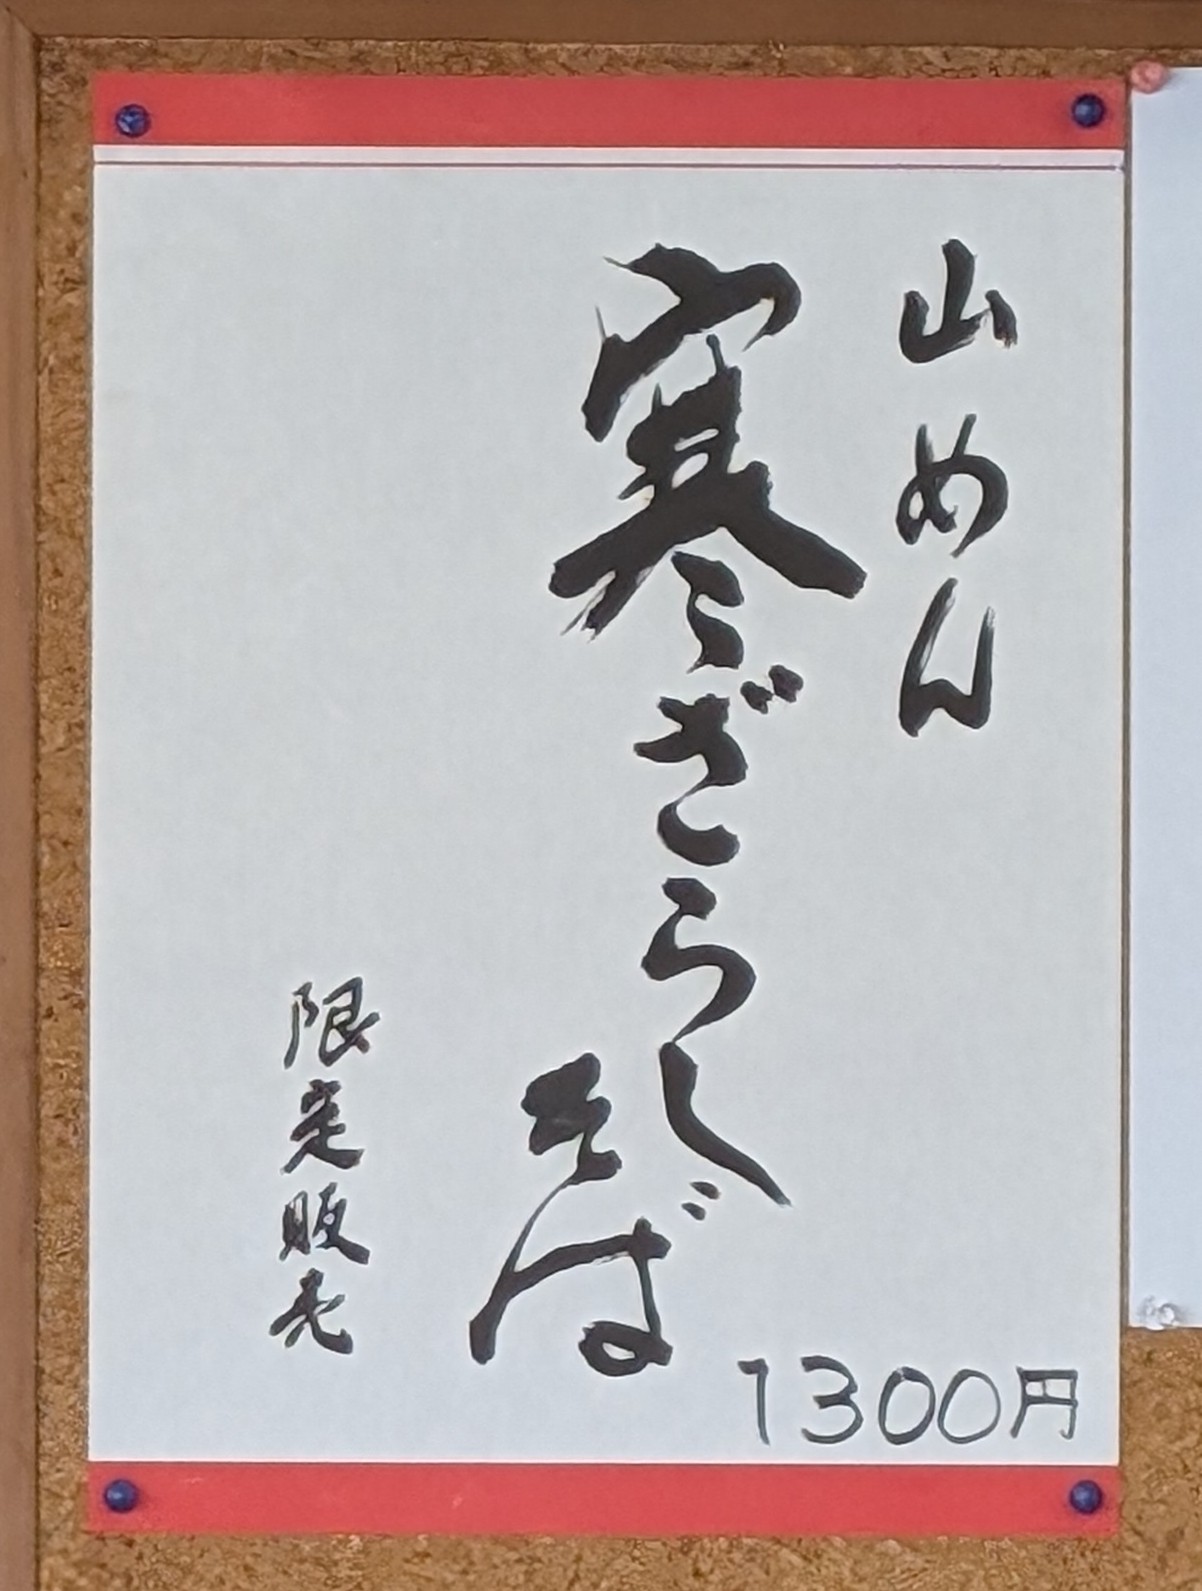 山めん
寒ざらし
そば
限定販売
1300円